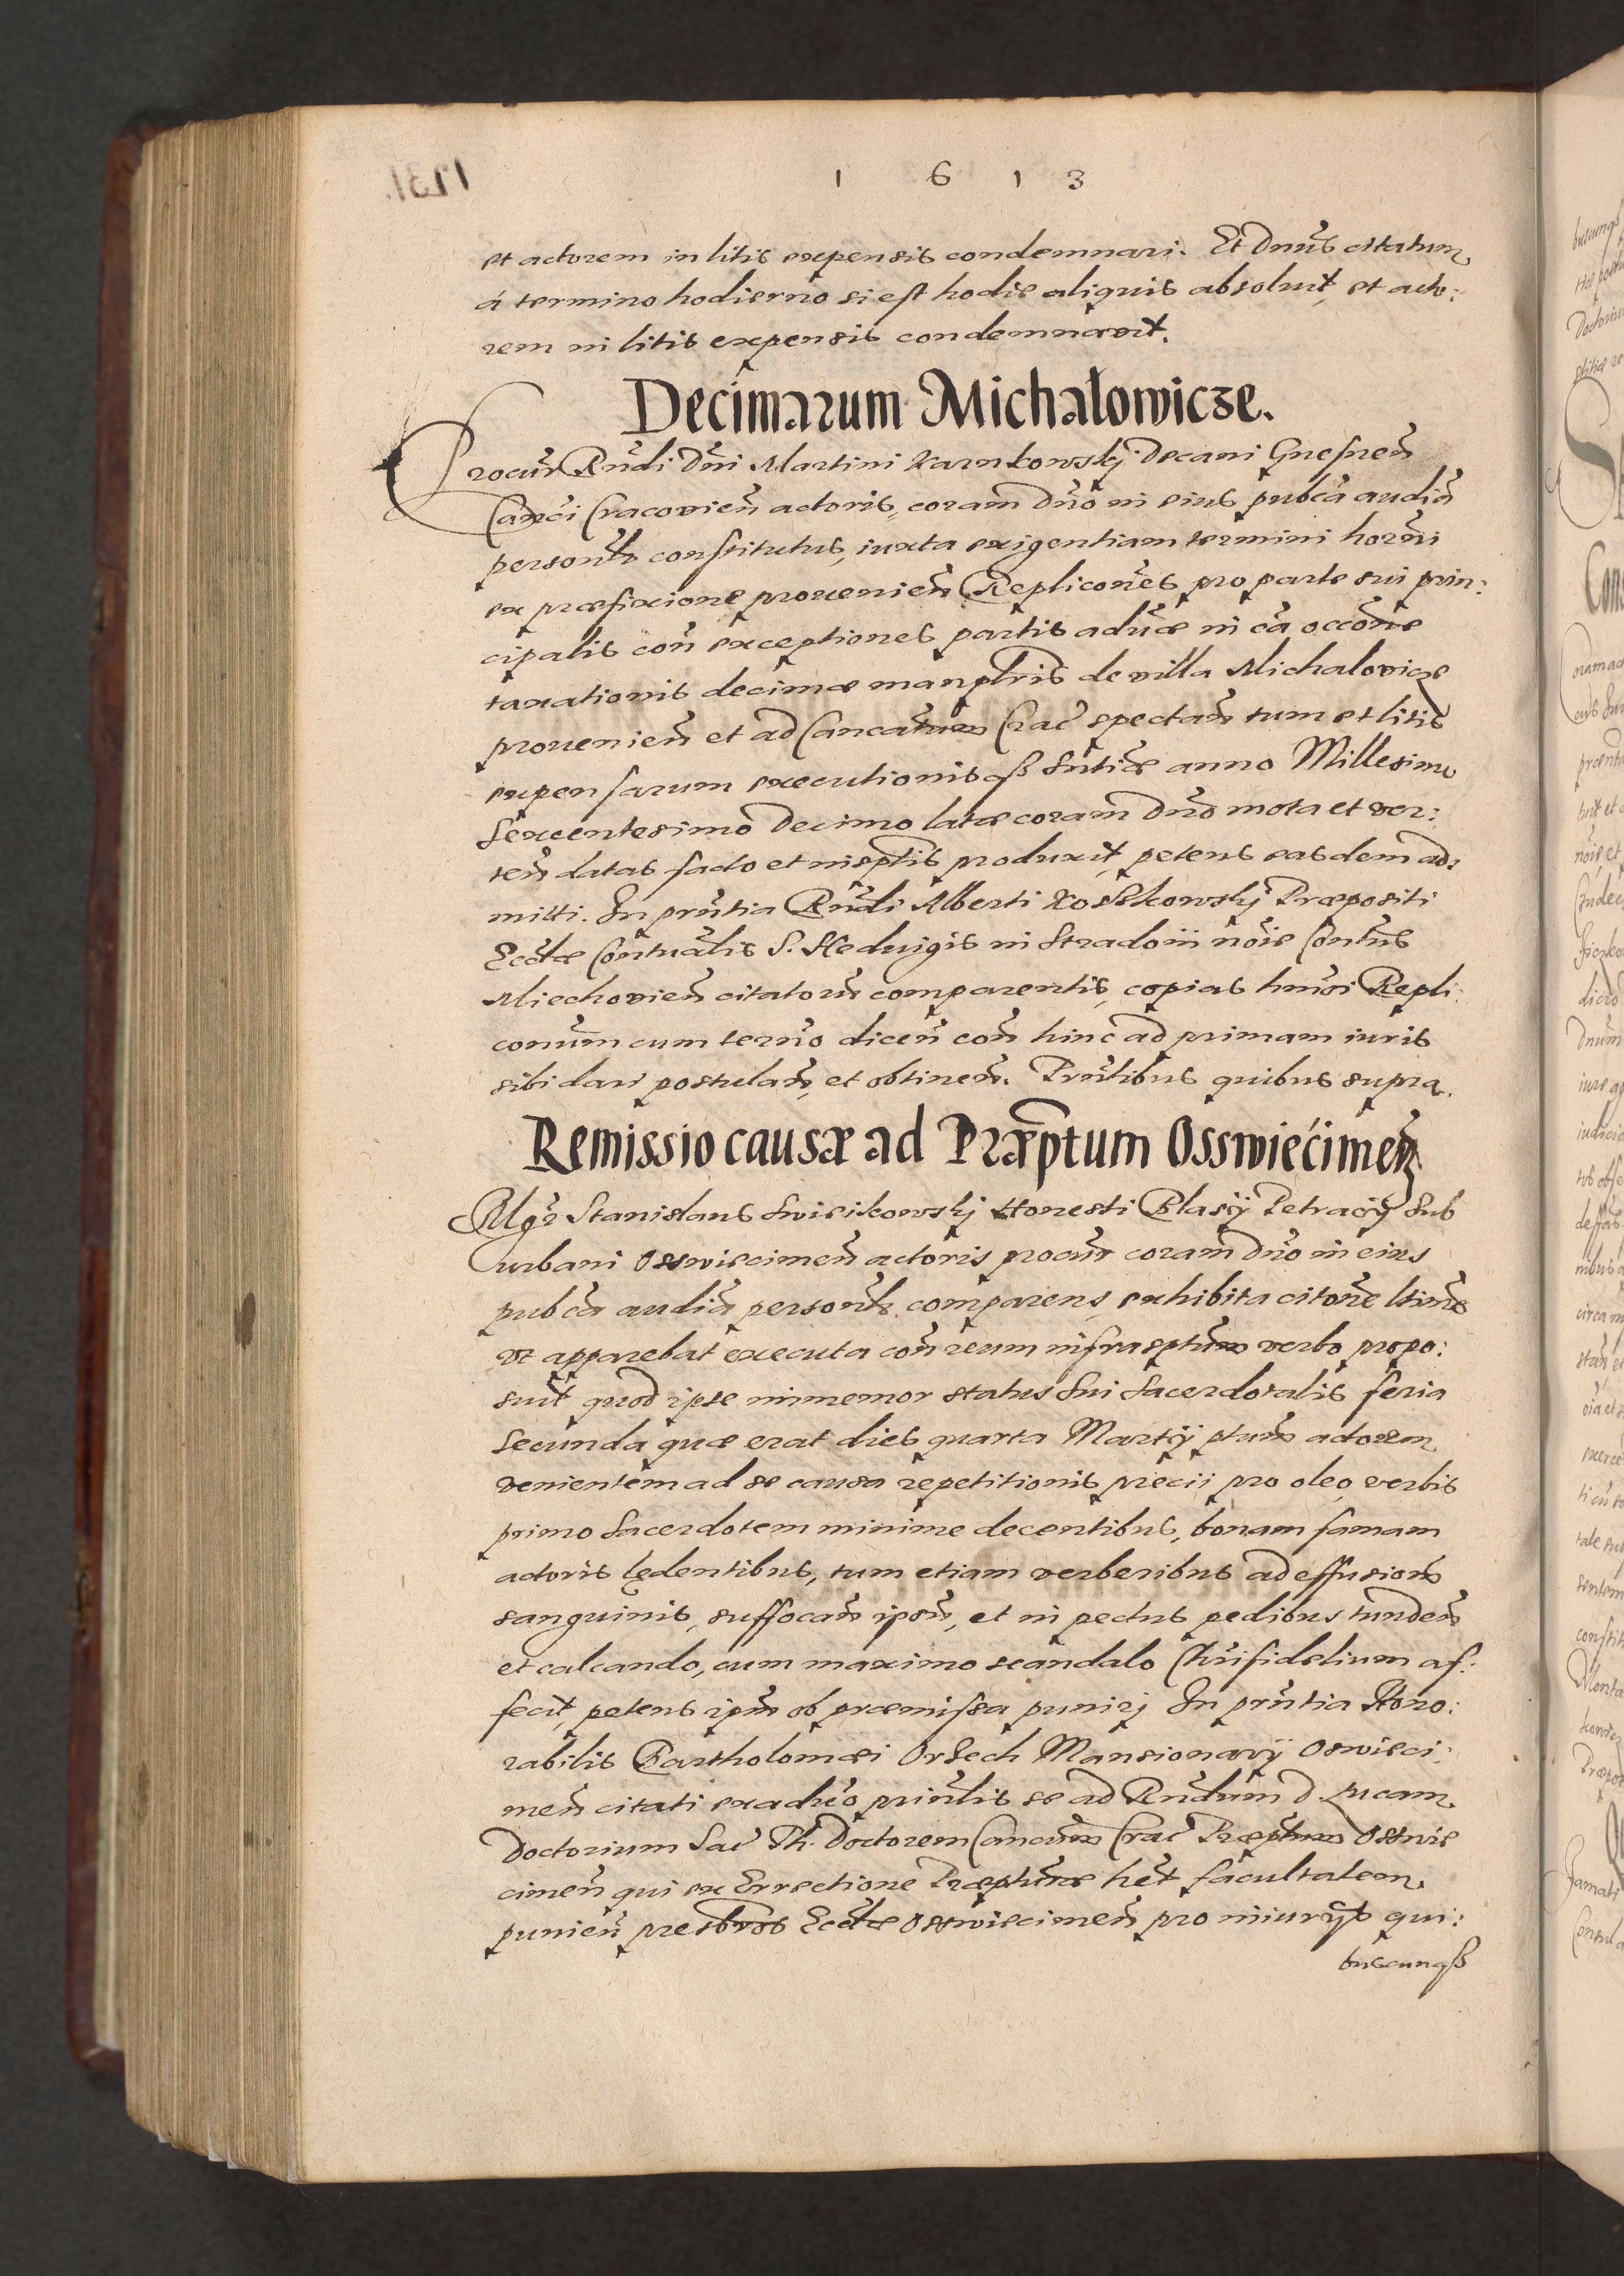 1 6 1 3
et actorem in litis expensis condemnari. Et Dnus citatum
á termino hodierno si est hodie aliquis absoluit, et acto:
rem in litis expensis condemnavit.
Decimarum Michalowicze.
Procur Rndi Dni Martini Karnkowskÿ Decani Gnesnen
Canci Cracovien actoris, coram Dno in eius pubca audia
personlr constitutus, iuxta exigentiam termini horni
ex præfixione provenien Replicones pro parte sui prin:
cipalis con exceptiones partis aduæ in ca occone
taxationis decimæ manplris de villa Michalovicze
provenien et ad Cancatum Crac spectan tum et litis
expensarum executionisqß sntiæ anno Millesimo
Sexcentesimo Decimo latæ coram Dno mota et ver:
ten datas facto et insptis produxit, petens easdem ad:
mitti. In prntia Rndi Alberti Koszkowskÿ Præpositi
Ecctæ Conntualis S. Hedvigis in Stradom nōie Contus
Miechovien citatorum comparentis, copias hmoi Repli:
conum cum termo dicen con hinc ad primam iuris
sibi dari postulan, et obtinen. Prntibus quibus supra.
Remissio causæ ad Præptum Osswiécimen
Mgr Stanislaus Swieiikowskj Honesti Blasÿ Petracÿ Sub
urbani Osswiecimen actoris procur coram Dno in eius
pubca audia personlr comparens, exhibita citone ltime
vt apparebat executa con reum infrasptum verbo propo:
suit quod ipse immemor status sui Sacerdotalis feria
Secunda quæ erat dies quarta Martÿ ptum actorem
venientem ad se causa repetitionis precii pro oleo verbis
primo Sacerdotem minime decentibus, bonam famam
actoris lędentibus, tum etiam verberibus ad effusionem
sanguinis, suffocan ipsum, et in pectus pedibus tunden
et calcando, cum maximo scandalo Chrifidelium af:
fecit, petens ipm ob præmissa punirj In prntia Hono:
rabilis Bartholomæi Orzech Mansionarÿ Oswieci:
men citati ex aduo prinlis se ad Rndum D. Lucam
Doctorium Sac Th. Doctorem Cancum Crac Præptum Osswie
cimen qui ex Errectione Præpturæ het facultatem
punien presbros Ecctæ Osswiecimen pro iniurÿs qui:
buscunqß